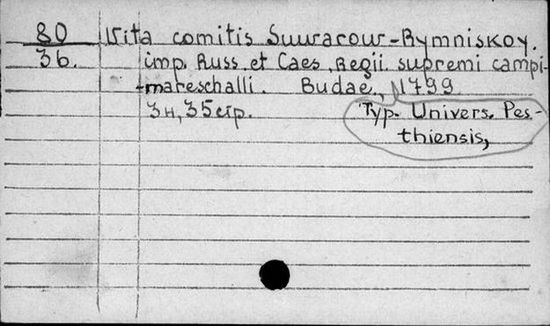 80 Vita comitis Suwarow-Rymniskoy.
36. imp. Russ. et Caes. Regii supremi campi-
mareschalli. Budae, 1799
3н, 35стр. Typ. Univers. Pes-
thiensis,